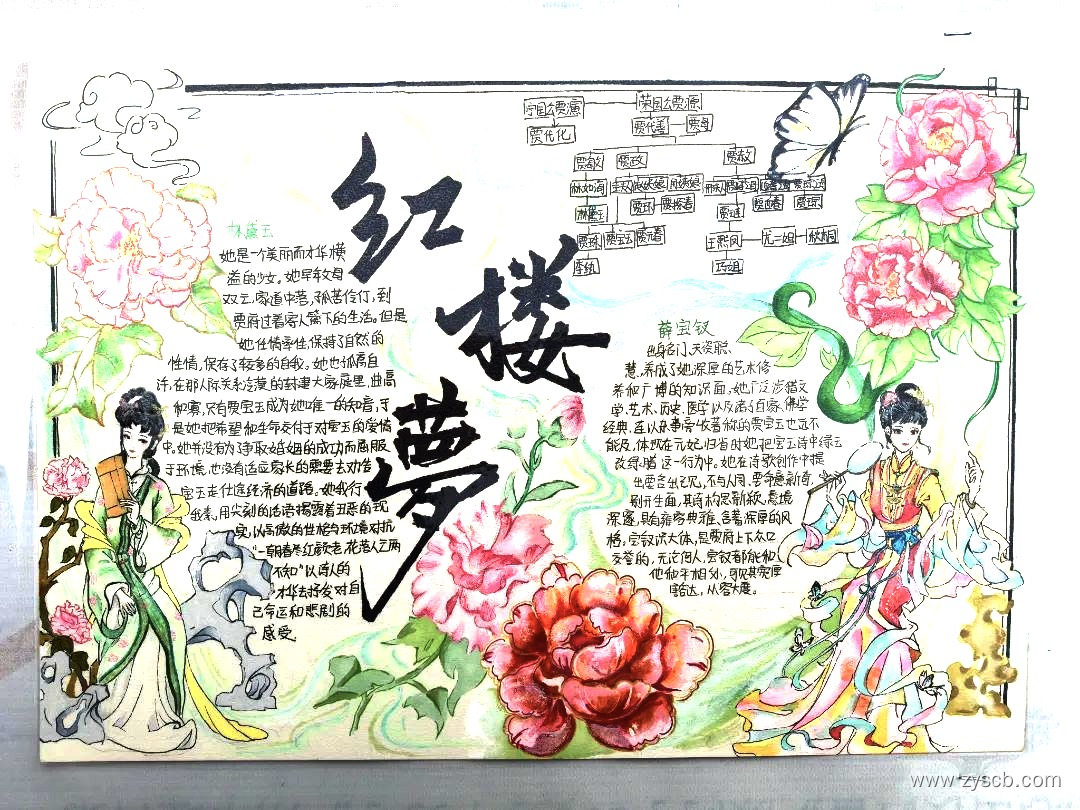 红
楼
夢
宁国公贾演 荣国公贾源
贾代化 贾代善 贾母
贾敏 贾政 贾赦
林如海
林黛玉 贾环 贾探春 贾琏 贾迎春 贾琮
贾珠 贾宝玉 贾元春 王熙凤 尤二姐 秋桐
李纨 巧姐
林黛玉
她是一个美丽而才华横
溢的少女。她早年父母
双亡,家道中落,孤苦伶仃,到
贾府过着寄人篱下的生活。但是
她任情率性,保持了自然的
性情,保存了较多的自我。她也孤高自
许,在那人际关系冷漠的封建大家庭里,曲高
和寡,只有贾宝玉成为她唯一的知音,于
是她把希望和生命交付于对宝玉的爱情
中。她并没有为争取婚姻的成功而屈服
于环境,也没有适应家长的需要去劝告
宝玉走仕途经济的道路。她我行
我素,用尖刻的话语揭露着丑恶的现
实,以高傲的性格与环境对抗
"一朝春尽红颜老,花落人亡两
不知"以诗人的
才华去抒发对自
己命运和悲剧的
感受
薛宝钗
出身名门,天资聪
慧,养成了她深厚的艺术修
养和广博的知识面。她广泛涉猎文
学、艺术、历史、医学以及诸子百家、佛学
经典,连以杂学旁收著称的贾宝玉也远不
能及,体现在元妃归省时她把宝玉诗中绿玉
改绿蜡这一行为中。她在诗歌创作中提
出要言出己见,不与人同,要命意新奇,
别开生面,其诗构思新颖,意境
深邃,具有雍容典雅、含著深厚的风
格,宝钗识大体,是贾府上下众口
交誉的,无论何人,宝钗都能和
他们平相处,可见其宽厚
豁达,从容大度。
www.zyscb.com